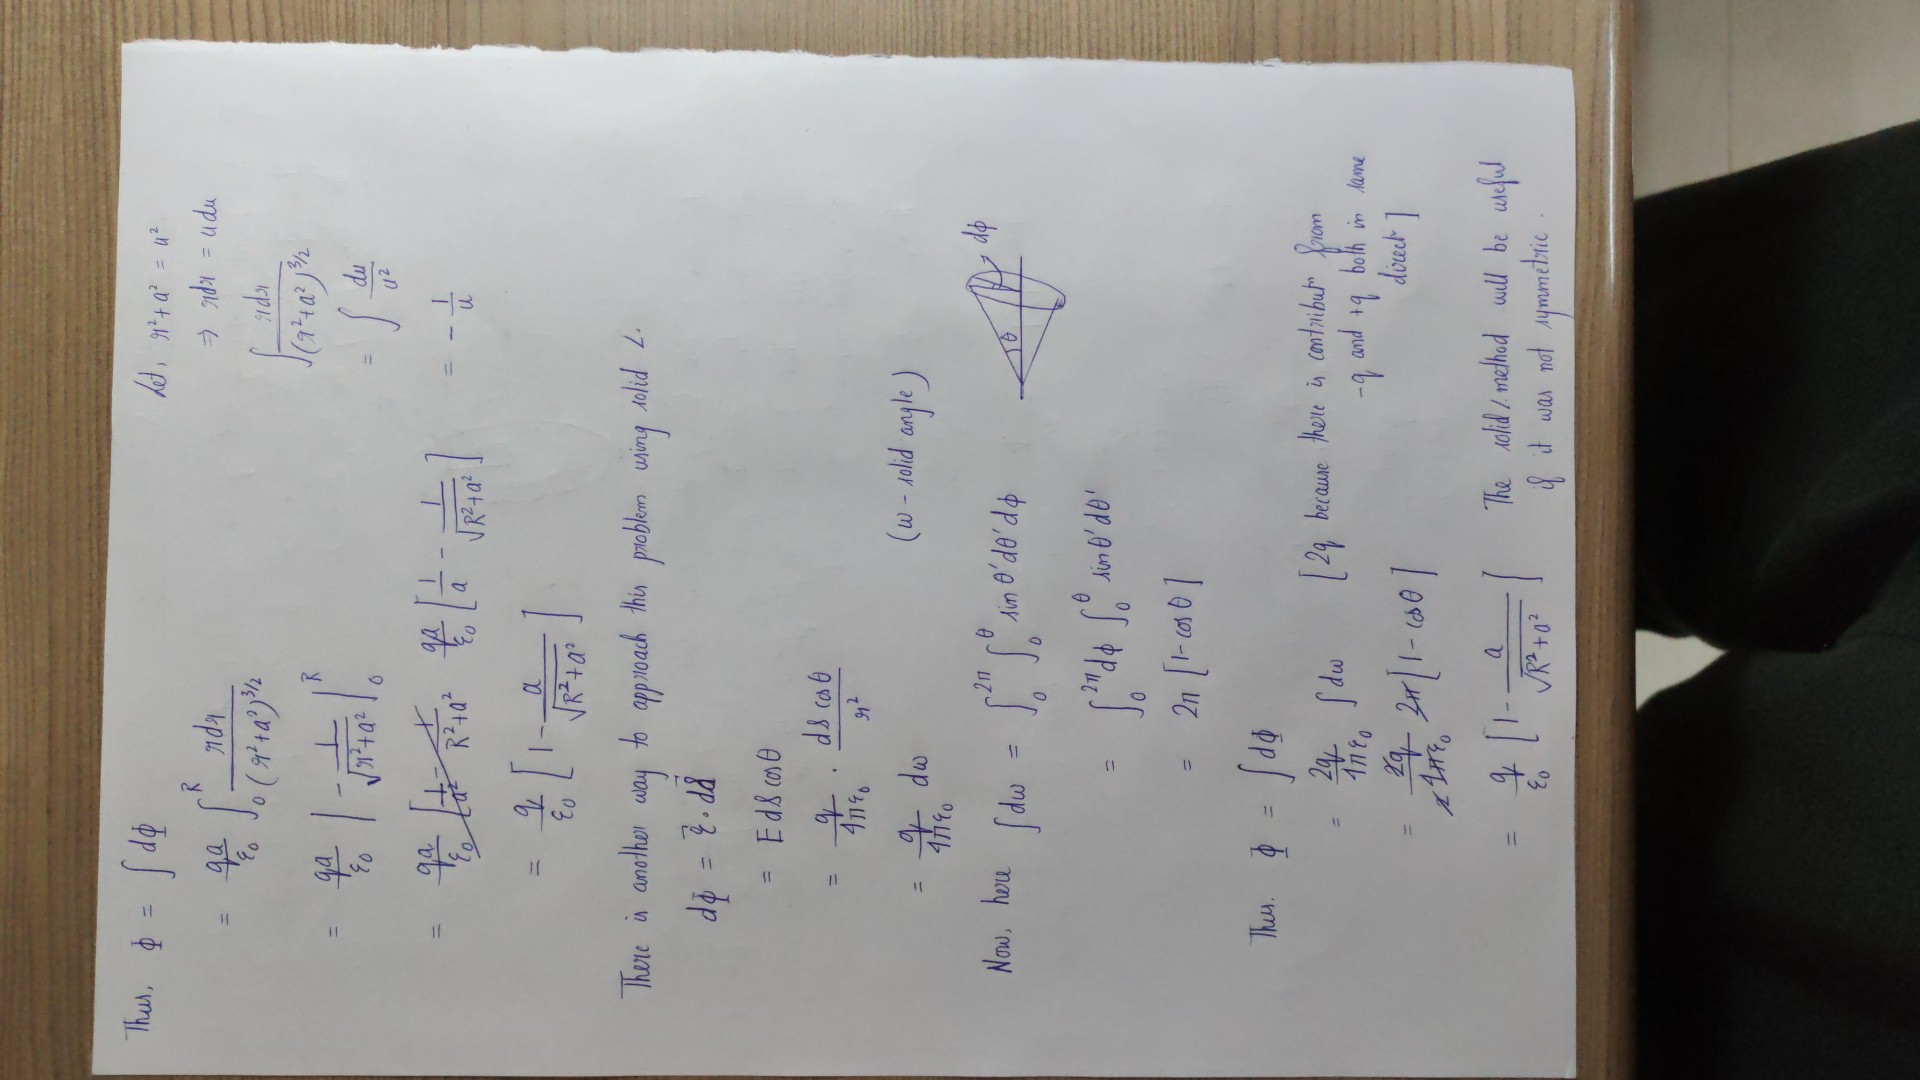 Thus, Φ = ∫ dΦ
= qa/ε₀ ∫₀ᴿ rdr/(r²+a²)^3/2
= qa/ε₀ | - 1/√(r²+a²) |₀ᴿ
= qa/ε₀ [1/a² - 1/R²+a² qa/ε₀ [1/a - 1/√(R²+a²)]
= q/ε₀ [1 - a/√(R²+a²)]
Let, r²+a² = u²
⇒ rdr = u du
∫ rdr/(r²+a²)^3/2
= ∫ du/u²
= - 1/u
There is another way to approach this problem using solid ∠.
dΦ = ε⃗ · dS⃗
= E dS cos θ
= q/4πε₀ · dS cos θ/r²
= q/4πε₀ dω (ω - solid angle)
Now, here ∫ dω = ∫₀^2π ∫₀^θ sin θ' dθ' dϕ
θ dϕ
= ∫₀^2π dϕ ∫₀^θ sin θ' dθ'
= 2π [1 - cos θ]
Thus. Φ = ∫ dΦ
= 2q/4πε₀ ∫ dω [2q because there is contribut from
-q and +q both in same
direct]
= 2q/2 4πε₀ 2π [1 - cos θ]
= q/ε₀ [1 - a/√(R²+a²)] The solid ∠ method will be useful
if it was not symmetric.